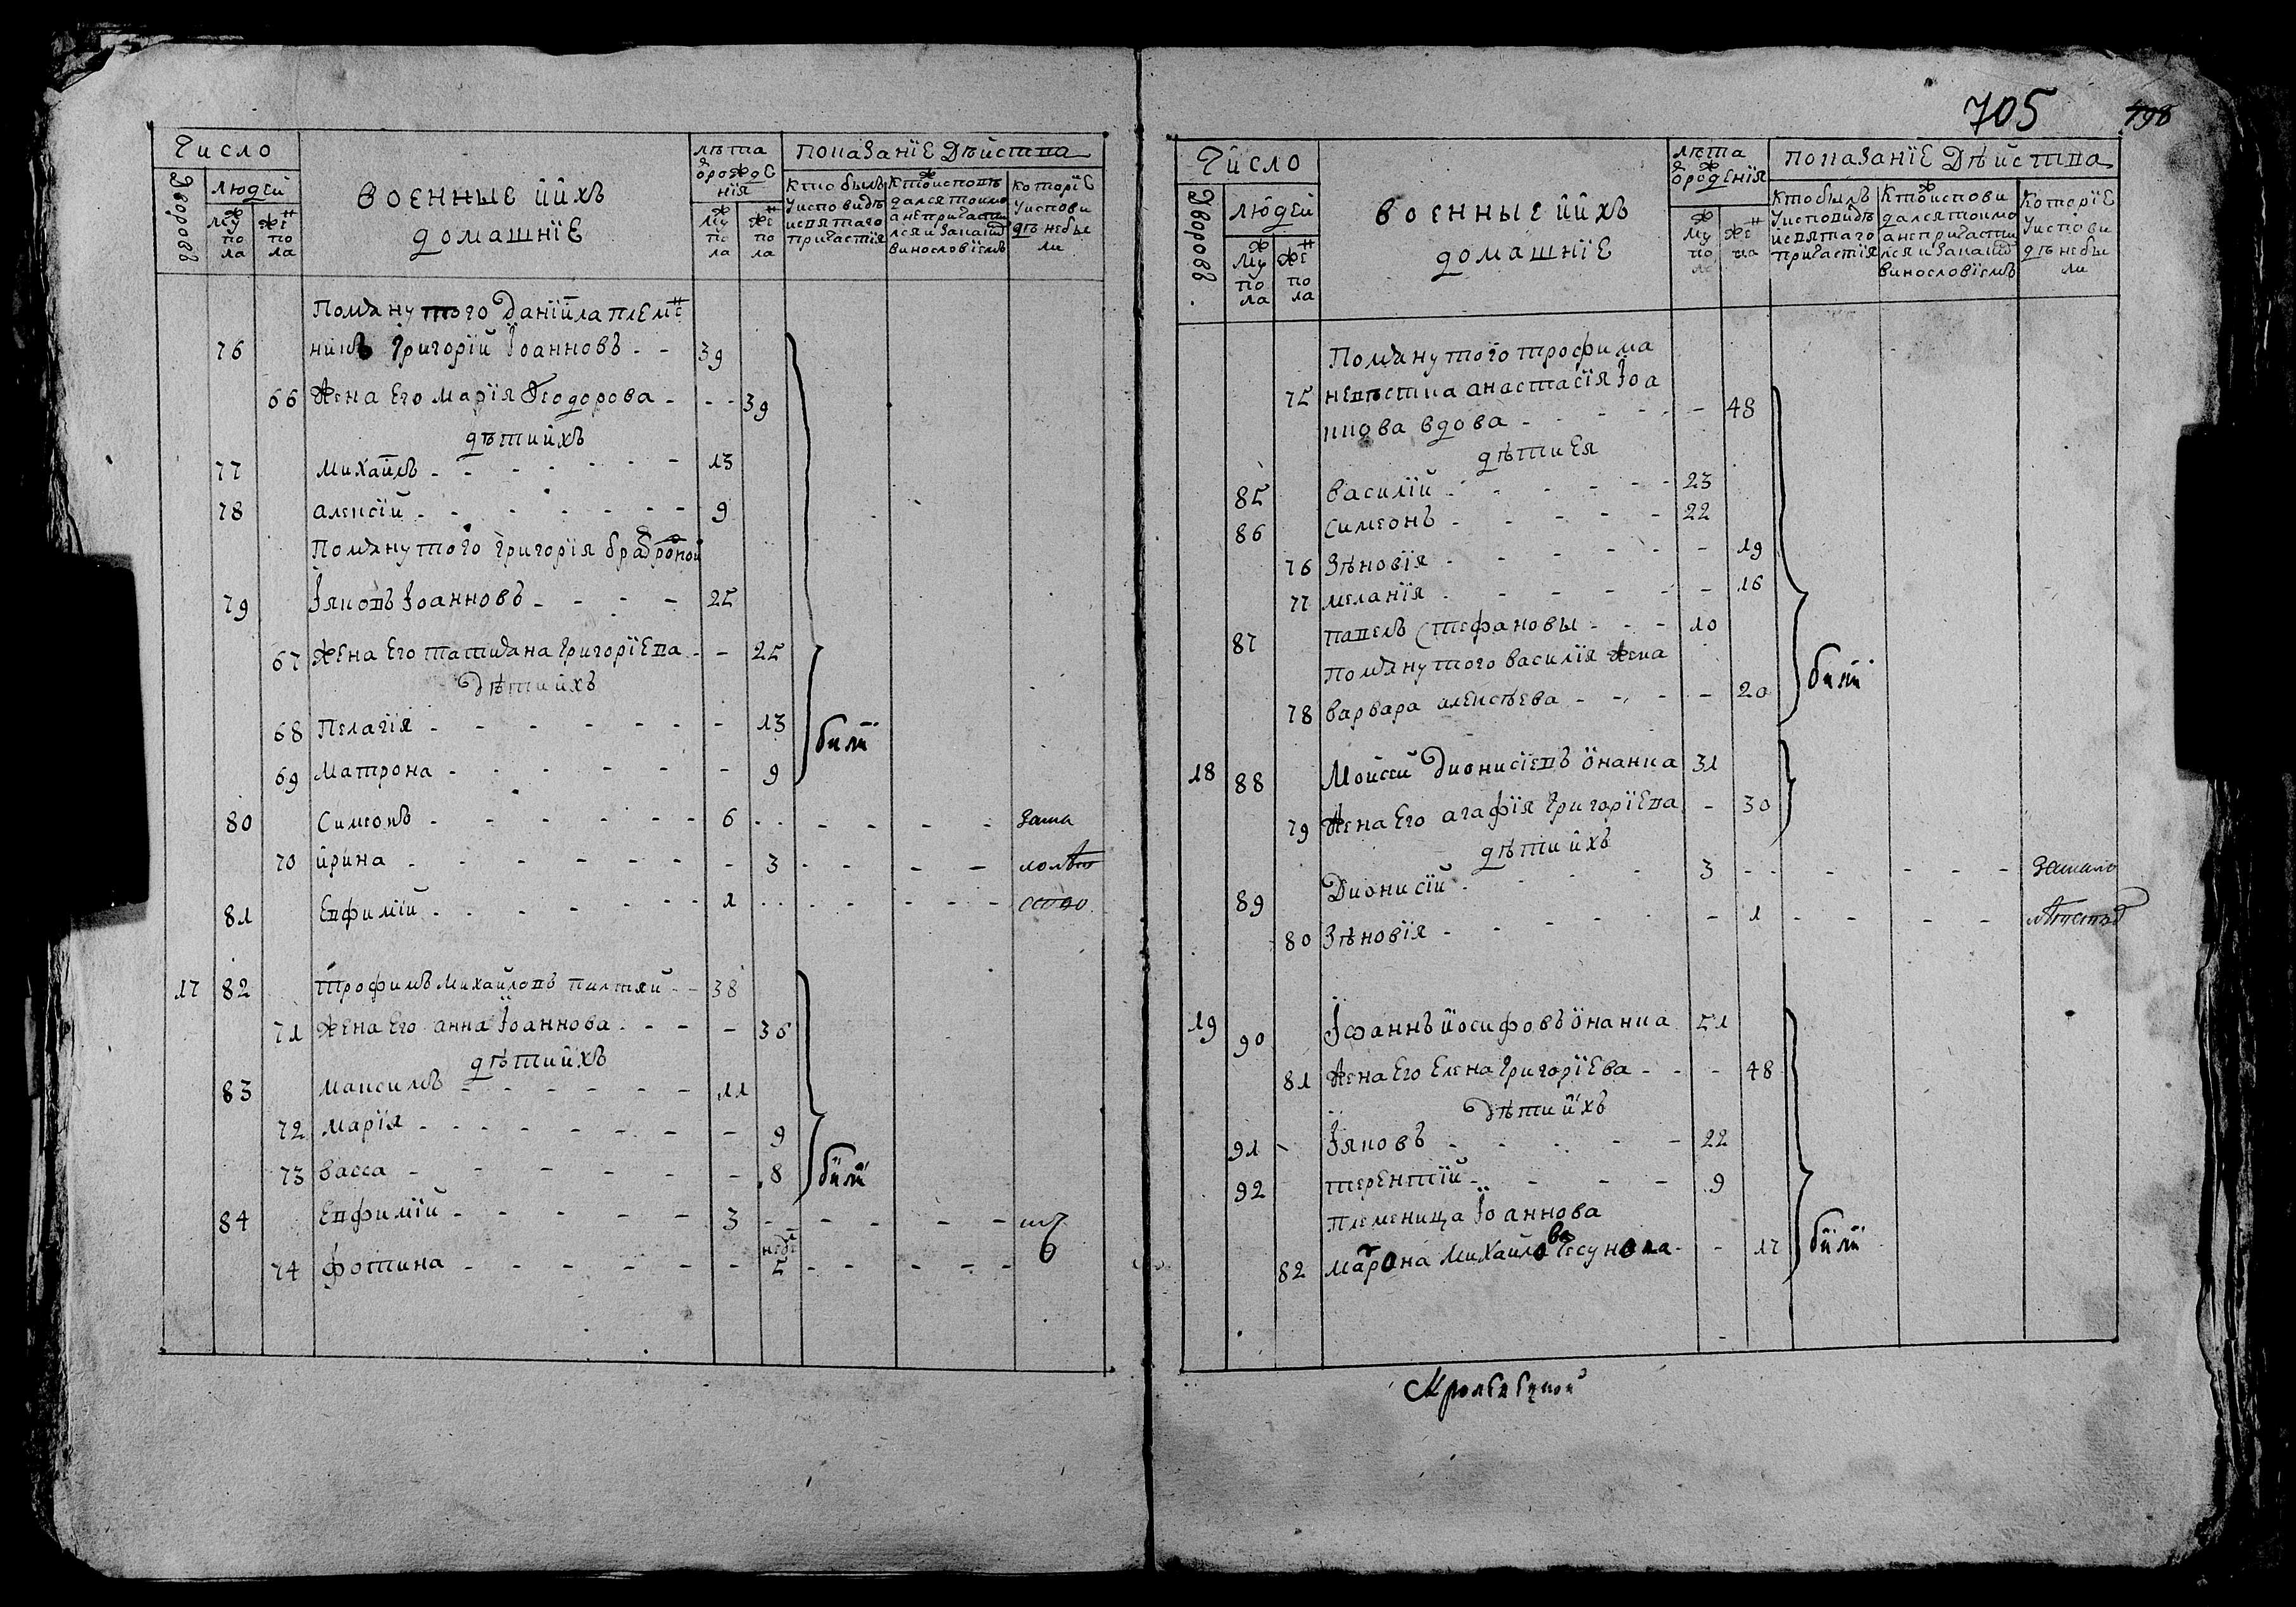 Число
Дворовъ
людей
муж пола
жен пола
военные и ихъ
домашніе
лѣта от рожде
нія
муж пола
жен пола
показаніе дѣйства
кто былъ
у исповиди
и святаго
причастія
кто исповѣ
дался токмо
а не причасти
лся и за каким
винословіемъ
которіе
у испови
ди не бы
ли
Помянутого Даніила племен
76 никъ Григорій Іоанновъ - - 39
66 Жена Его Марія Ѳеодорова - - - 39
дѣти ихъ
77 Михаилъ - - - - - - 13
78 Алексій - - - - - - 9
Помянутого Григорія брат родной
79 Іяковъ Іоанновъ - - - - 25
67 Жена Его Татияна Григоріева - - 25
Дѣти ихъ
68 Пелагія - - - - - - 13
били
69 Матрона - - - - - - 9
80 Симеонъ - - - - - - 6 - - - - - - зама
70 Ирина - - - - - - - 3 - - - - лолѣт
81 Евфимій - - - - - - 1 - - - - - -
17 82 Трофимъ Михайловъ Пилтяй - - 38
71 Жена Его Анна Іоаннова - - - - 36
дѣти ихъ
83 Максимъ - - - - - - 11
72 Марія - - - - - - - 9
73 Васса - - - - - - - 8 били
84 Евфимій - - - - - 3 - - - - -
74 Фотина - - - - - - - недѣ 5 - - - - -
705
798
Число
Дворовъ
людей
муж пола
жен пола
военные и ихъ
домашніе
лѣта
от рожденія
муж по
жен па
показаніе дѣйства
кто былъ
у исповидѣ
и святаго
причастія
кто испови
дался токмо
а не причасти
лся и за каким
винословіемъ
которіе
у испови
дѣ не бы
ли
Помянутого Трофима
75 невѣстка Анастасія Іоа
ннова вдова - - - - - 48
дѣти Ея
85 Василій - - - - - 23
86 Симеонъ - - - - - 22
76 Зѣновія - - - - - - 19
77 Меланія - - - - - - 16
87 Павелъ Стефановы - - - 10
Помянутого Василія жена
били
78 Варвара Алексѣева - - - - 20
18 88 Мойсей Дионисіевъ Онанка 31
79 Жена Его Агафія Григоріева - 30
дѣти ихъ
89 Дионисій - - - - 3 - - - - - - замало
80 Зѣновія - - - - - - 1 - - - - лѣтствъ
19 90 Іѡаннъ Иосифовъ Онанка 51
81 Жена Его Елена Григоріева - - - 48
Дѣти ихъ
91 Іяковъ - - - - - 22
92 Терентій - - - - 9
Племеница Іоаннова
82 Матрона Михайлова Чесунова - - 17 били